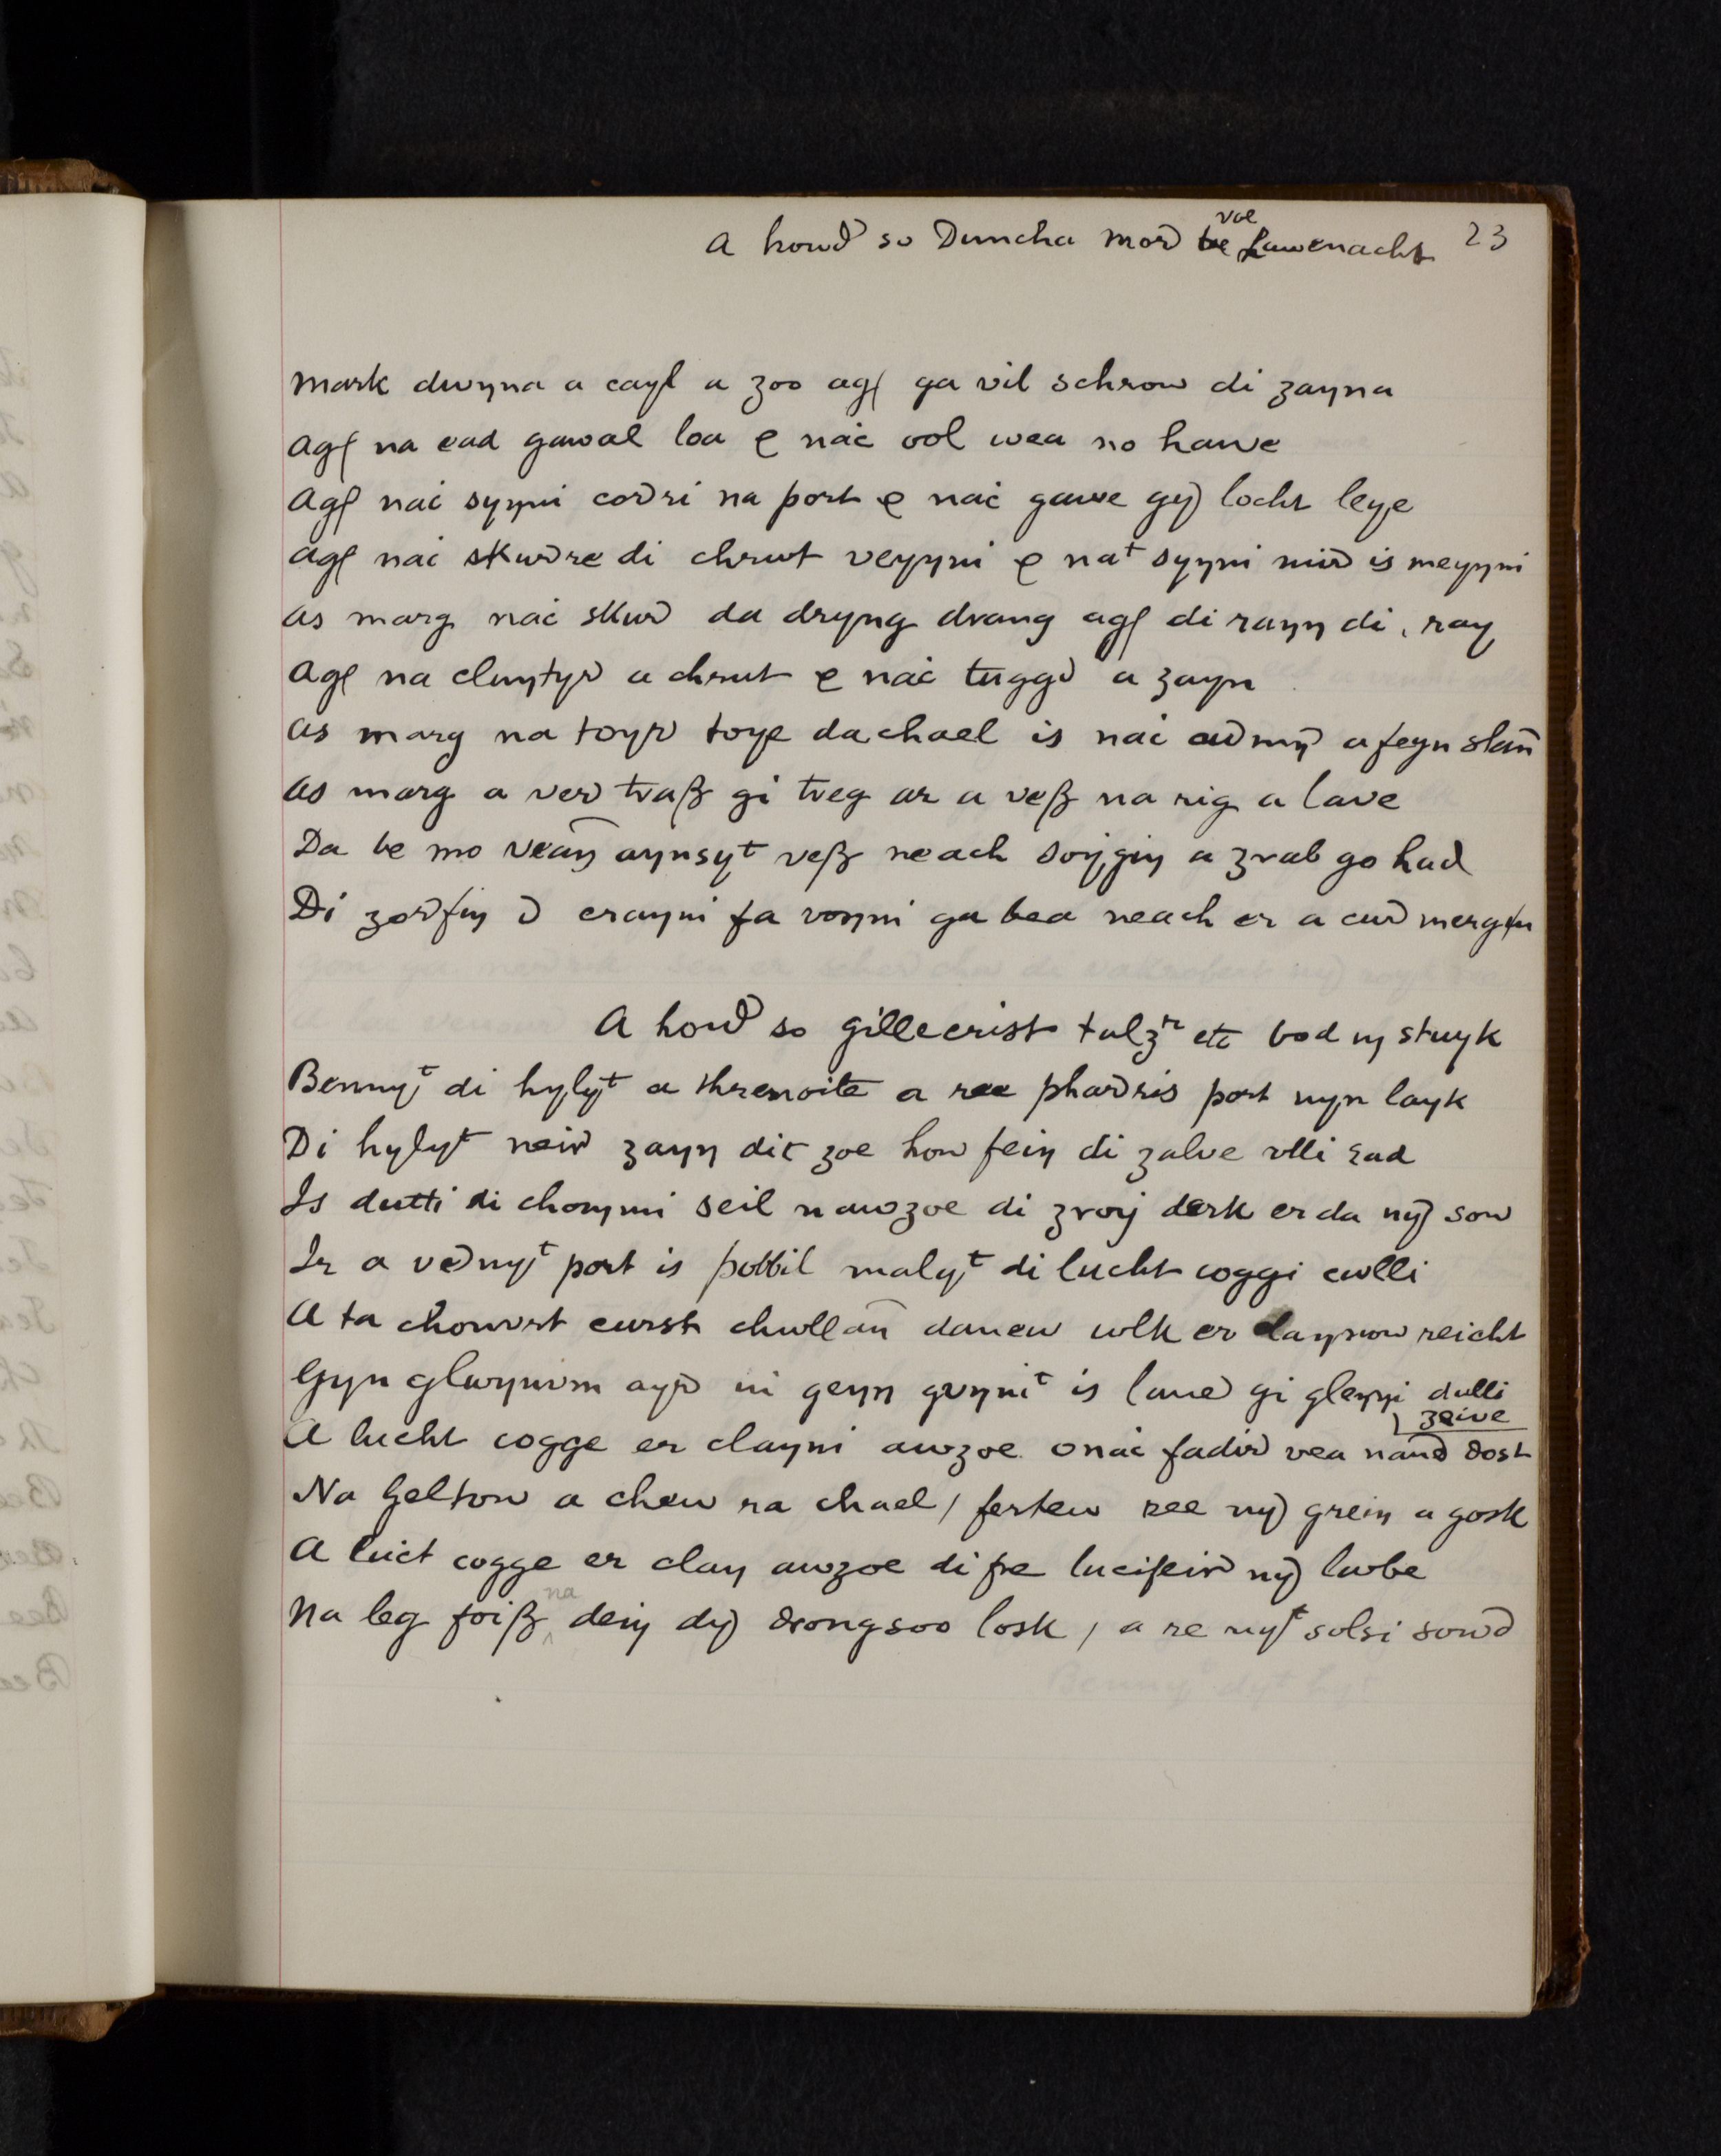 A howd so Duncha mor voe Lawenacht 23
Mark dwyna a cayl a zoo agꝭ ga vil schrow di zayna
agꝭ na ead gawal loa ꝯ nac ool wea no hawe
agꝭ nac synni corri na port ꝯ nac gawe gy locht leye
agꝭ nac skurre di chrut veyyni ꝯ naᵗ synni mir is meyyni
as marg nac skur da dryng drang agꝭ di rayn di ray
agꝭ na cluytyr a chrut ꝯ nac tuggr a zayn
as marg na toyr toye da chael is nac a feyn slan
as marg a ver traß gi treg ar a veß na rig a lave
Da be mo aynsyᵗ veß neach a zrab go had
Di zorfin er crayni fa voyni ga bea neach er a cur
A howd so gillecrist talzʳ etc bod ny stuyk
Bennyᵗ di hylyᵗ a threnoite a ree phadris port nyn layk
Di hylyᵗ neir zayn dit zoe how fein di zalve vlli rad
Is dutti di choymmi seil nawzoe di zroy derk er da ny sow
Ir a vednyᵗ port is pobbil malyᵗ di lucht coggi cwlli
A ta chowrst curst chullan danew wlk er reicht
Gyn glwynwm ayr ni geyn gvyniᵗ is lawe gi gleyyi dulli
zeive
A lucht cogge er clayni awzoe onac fadir vea nand dost
Na geltow a chew ra chael / fertew ree ny grein a gosk
A luict cogge er clay awzoe di fre lucifeir ny lwbe
Na leg foiß na dein dy drongsoo losk / a re nyᵗ solsi sowd